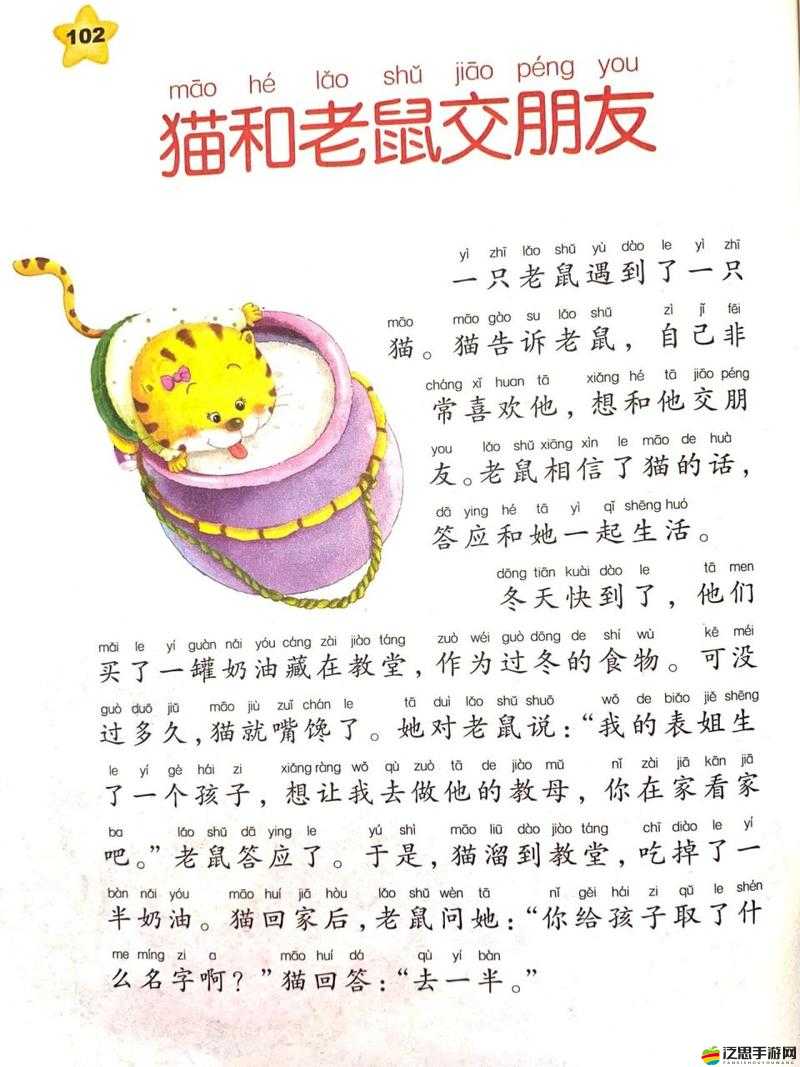 102
māo hé lǎo shǔ jiāo péng you
猫和老鼠交朋友
yì zhī lǎo shǔ yù dào le yì zhī
一只老鼠遇到了一只
māo māo gào su lǎo shǔ zì jǐ fēi
猫。猫告诉老鼠，自己非
cháng xǐ huan tā xiǎng hé tā jiāo péng
常喜欢他，想和他交朋
you lǎo shǔ xiāng xìn le māo de huà
友。老鼠相信了猫的话，
dā ying hé tā yì qǐ shēng huó
答应和她一起生活。
dōng tiān kuài dào le tā men
冬天快到了，他们
mǎi le yí guàn nǎi yóu cáng zài jiào táng zuò wéi guò dōng de shí wù kě méi
买了一罐奶油藏在教堂，作为过冬的食物。可没
guò duō jiǔ māo jiù zuǐ chán le tā duì lǎo shǔ shuō wǒ de biǎo jiě shēng
过多久，猫就嘴馋了。她对老鼠说：“我的表姐生
le yí gè hái zi xiǎng ràng wǒ qù zuò tā de jiào mǔ nǐ zài jiā kān jiā
了一个孩子，想让我去做他的教母，你在家看家
ba lǎo shǔ dā ying le yú shì māo liū dào jiào táng chī diào le yí
吧。”老鼠答应了。于是，猫溜到教堂，吃掉了一
bàn nǎi yóu māo huí jiā hòu lǎo shǔ wèn tā nǐ gěi hái zi qǔ le shén
半奶油。猫回家后，老鼠问她：“你给孩子取了什
me míng zi a māo huí dá qù yí bàn
么名字啊？”猫回答：“去一半。”
泛思手游网
FANSISHOUYOUWANG